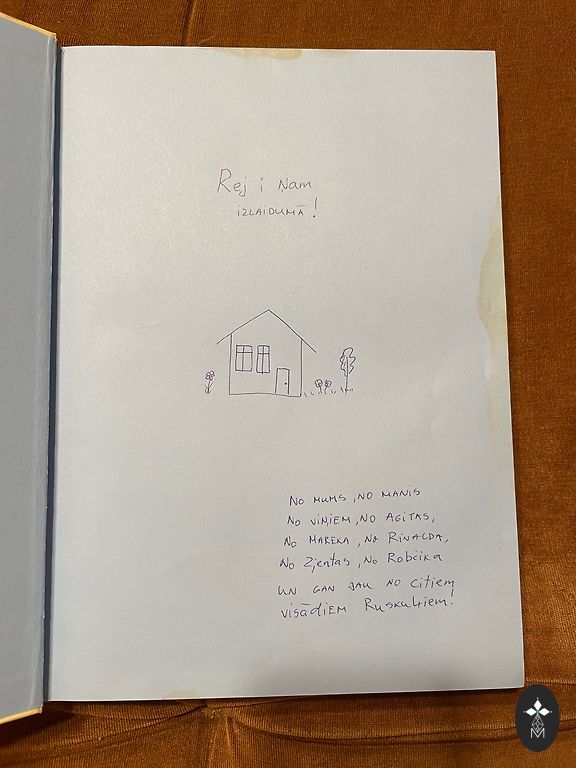 Rej i Ņam
IZLAIDUMĀ!
No MUMS, NO MANIS
No VIŅIEM, NO AGITAS,
No MAREKA, No RINALDA,
No Zjentas, No Robčika
UN GAN JAU NO Citiem
visādiem Ruskuļiem!
M